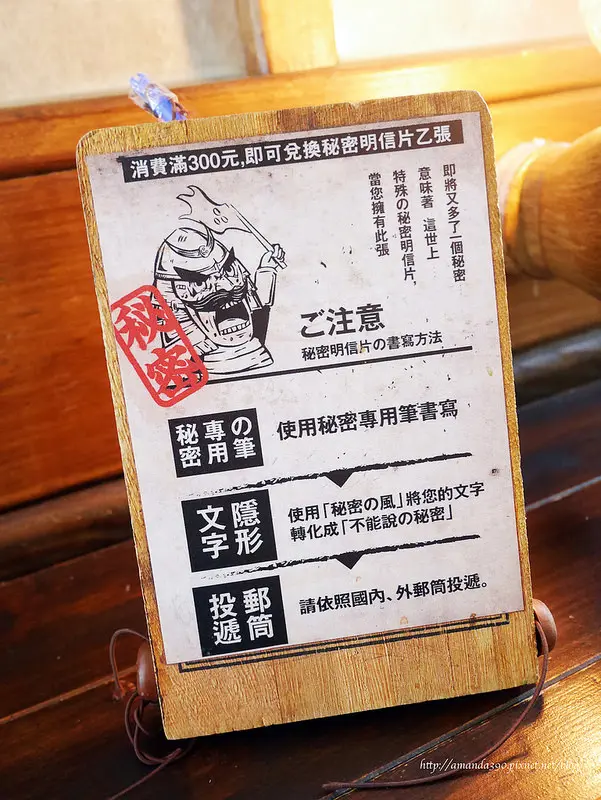 消費滿300元,即可兌換秘密明信片乙張
當您擁有此張
特殊の秘密明信片,
意味著 這世上
即將又多了一個秘密
秘密
ご注意
秘密明信片の書寫方法
秘密
專用
の筆
使用秘密專用筆書寫
隱形
文字
使用「秘密の風」將您的文字
轉化成「不能說の秘密」
郵筒
投遞
請依照國內、外郵筒投遞。
http://amanda390.pixnet.net/blog